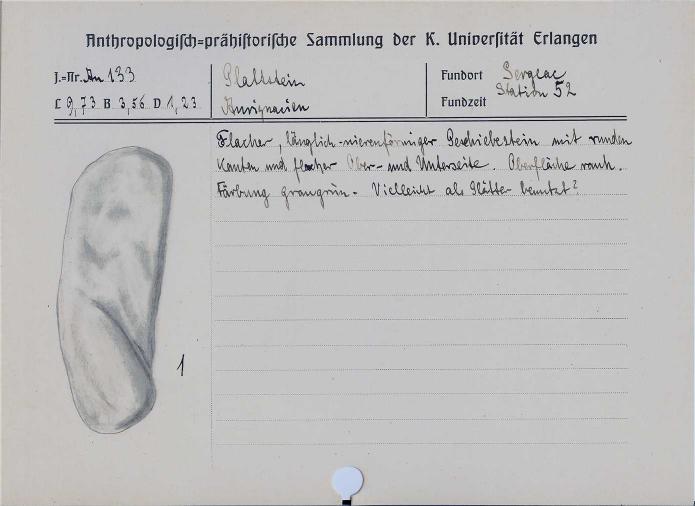 Anthropologisch=prähistorische Sammlung der K. Universität Erlangen
J.=Nr. Au 133
L 9,73 B 3,56 D 1,23
Plattstein
Aurignacien
Fundort Sergeac
Station 52
Fundzeit
Flacher, länglich-nierenförmiger Geschiebestein mit runden
Kanten und flacher Ober- und Unterseite. Oberfläche rauh.
Färbung graugrün. Vielleicht als Glätter benutzt?
1